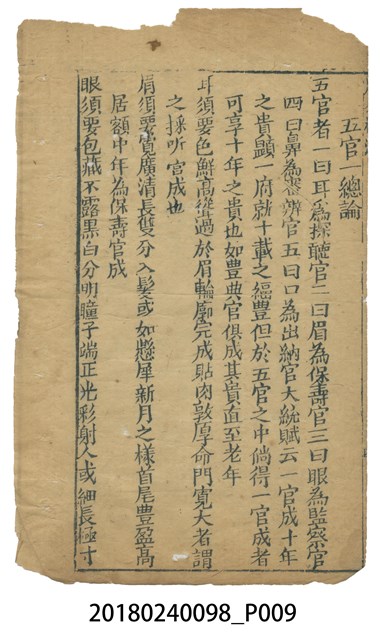 五官一總論
五官者一曰耳為探聽官二曰眉為保壽官三曰眼為監察官
四曰鼻為審辨官五曰口為出納官大統賦云一官成十年
之貴顯一府就十載之福豐但於五官之中倘得一官成者
可享十年之貴也如豊典官俱成其貴直至老年
耳須要色鮮高聳過於眉輪廓完成貼肉敦厚命門寬大者謂
之採听官成也
眉須要寬廣清長双分入髮或如懸犀新月之樣首尾豊盈高
居額中年為保壽官成
眼須要包藏不露黒白分明瞳子端正光彩射人或細長極寸
20180240098_P009